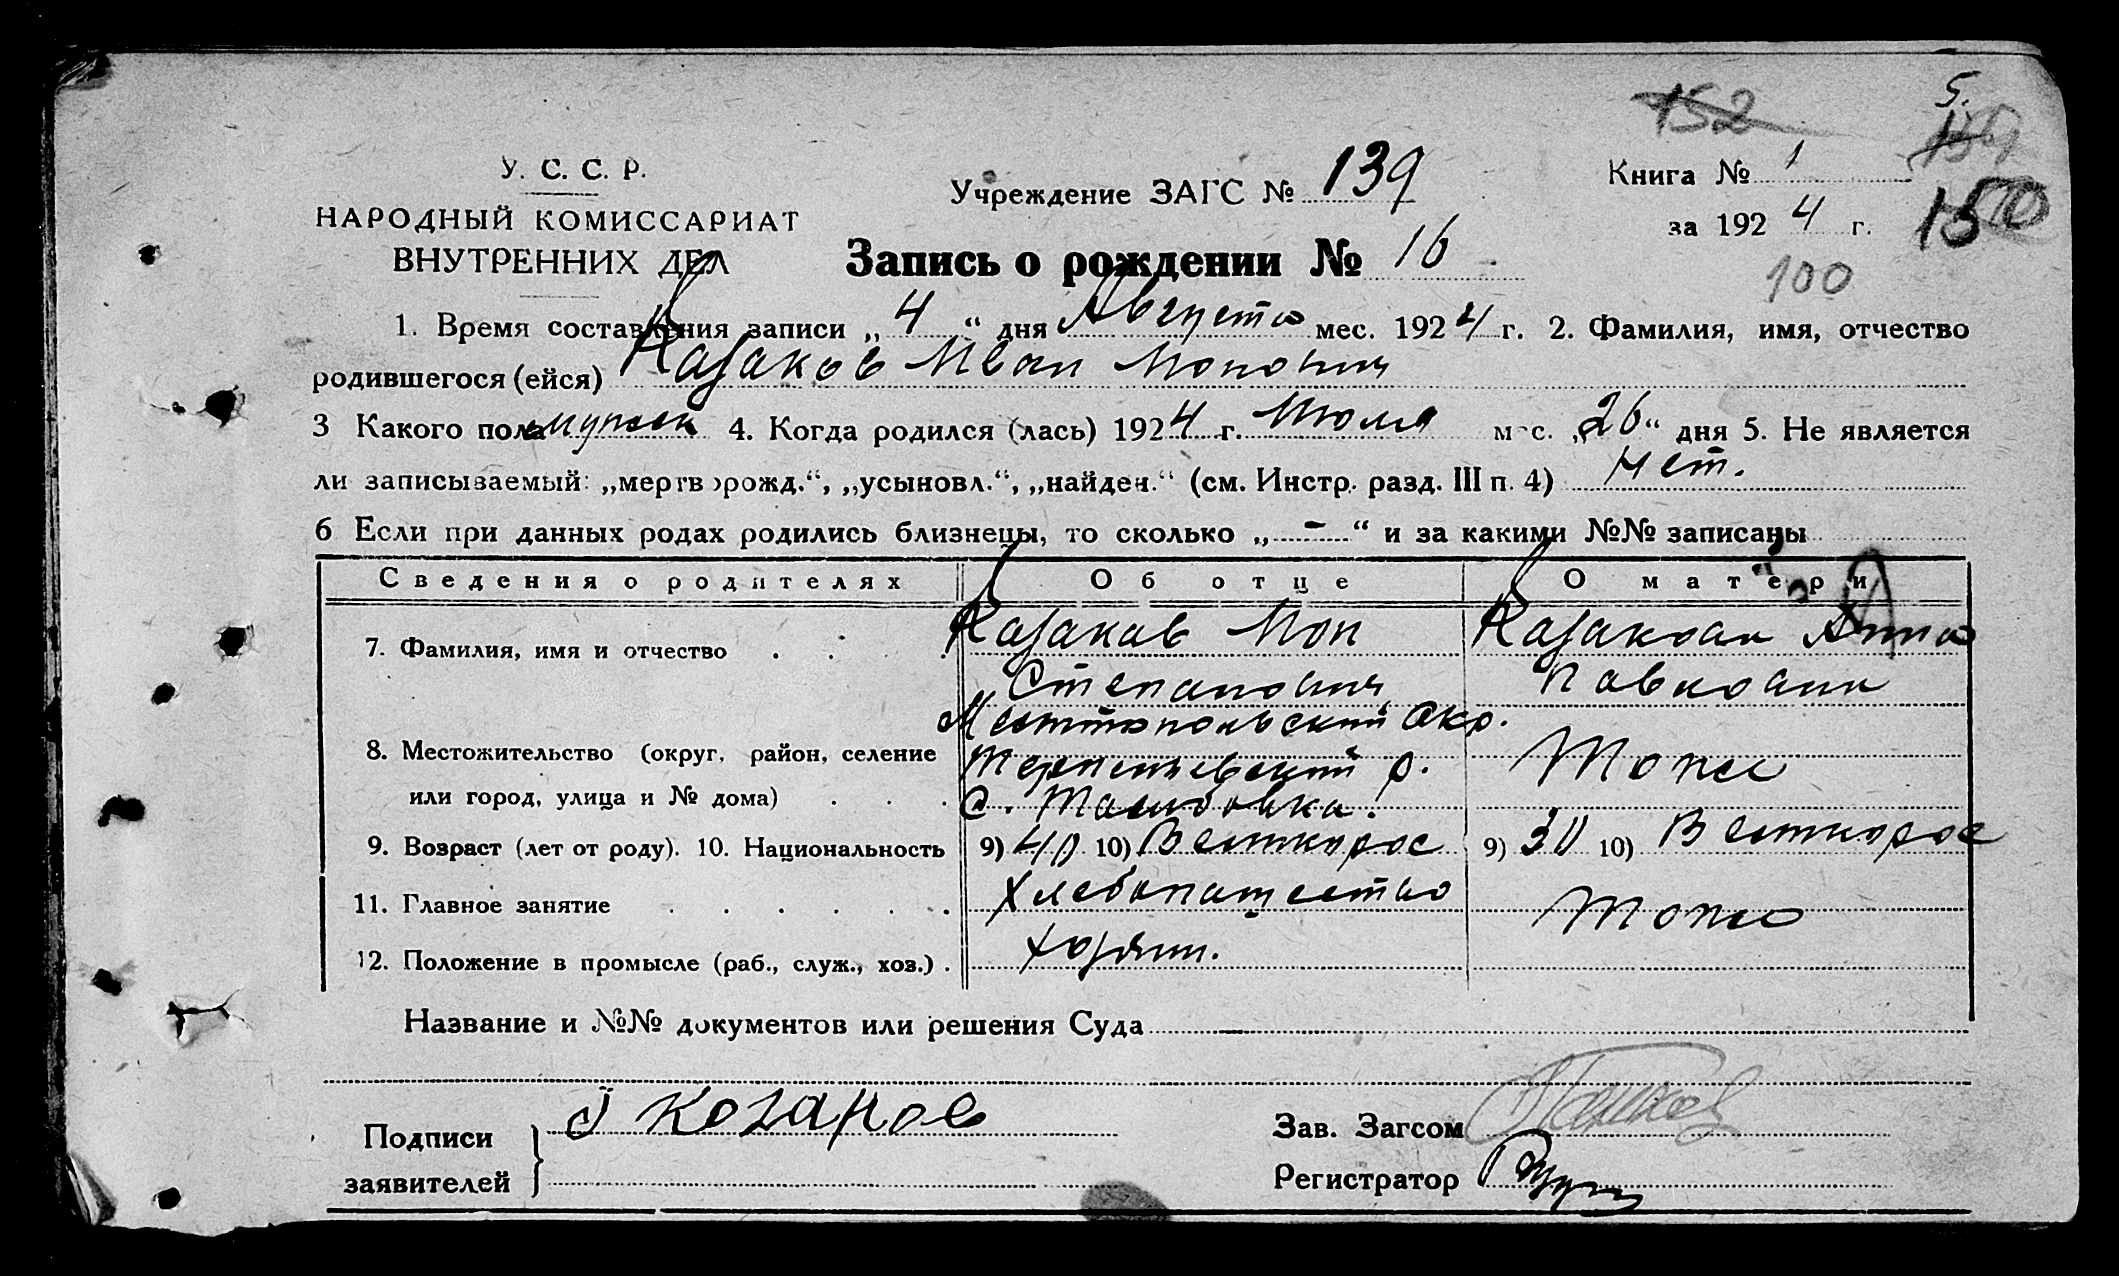 152
5.
У. С. С. Р.
НАРОДНЫЙ КОМИССАРИАТ
ВНУТРЕННИХ ДЕЛ
Учреждение ЗАГС № 139
Книга № 1
за 1924 г.
150
100
Запись о рождении № 16
1. Время составления записи „4“ дня Августа мес. 1924 г. 2. Фамилия, имя, отчество
родившегося (ейся) Казаков Иван
3 Какого пола мужск 4. Когда родился (лась) 1924 г. Июля мес. „26“ дня 5. Не является
ли записываемый: „мертворожд.“, „усыновл.“, „найден.“ (см. Инстр. разд. III п. 4) Нет.
6 Если при данных родах родились близнецы, то сколько „-“ и за какими №№ записаны
Сведения о родителях Об отце О матери
7. Фамилия, имя и отчество Казаков Казакова Анна
Степанович Павловна
Мелитопольский Окр.
8. Местожительство (округ, район, селение Терпеньевский р. Тоже
или город, улица и № дома) с.
9. Возраст (лет от роду). 10. Национальность 9) 40 10) Великорос 9) 30 10) Великорос
11. Главное занятие Хлебопашество Тоже
12. Положение в промысле (раб., служ., хоз.) Хозяин.
Название и №№ документов или решения Суда —
Подписи
заявителей
Казаков
Зав. Загсом
Регистратор